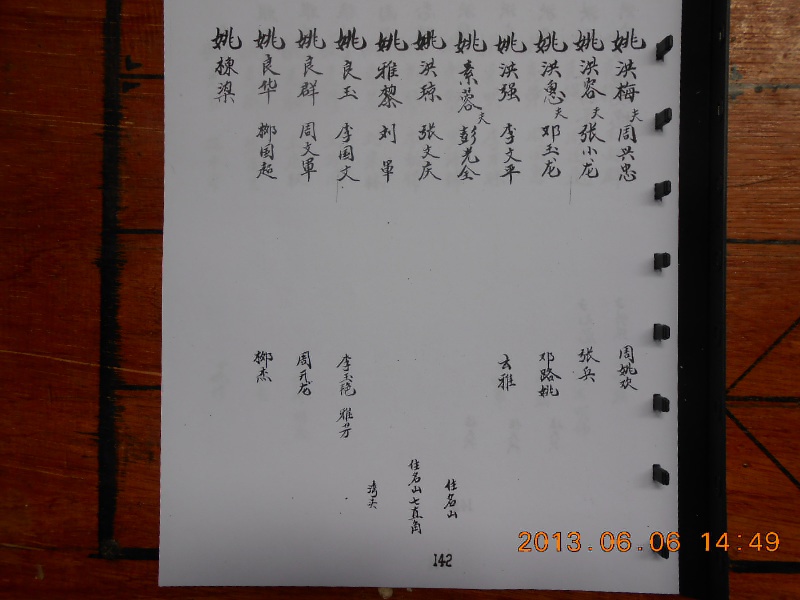 姚洪梅 夫 周兴忠 周姚欢
姚洪容 夫 张小龙 张兵
姚洪惠 夫 邓玉龙 邓路姚
姚洪强 李文平 玄雅
姚素蓉 夫 彭光全 住名山
姚洪琼 张文庆 住名山七直角
姚雅黎 刘军
姚良玉 李国文 李玉艳 雅芳
姚良群 周文军 周元龙
姚良华 柳国超 柳杰
姚栋梁
142
2013.06.06 14:49